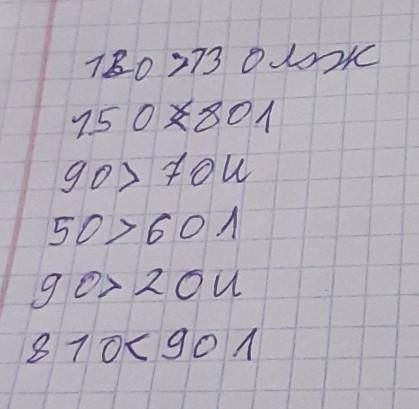 180 > 130 лож
150 < 80 л
90 > 70 и
50 > 60 л
90 > 20 и
810 < 90 л